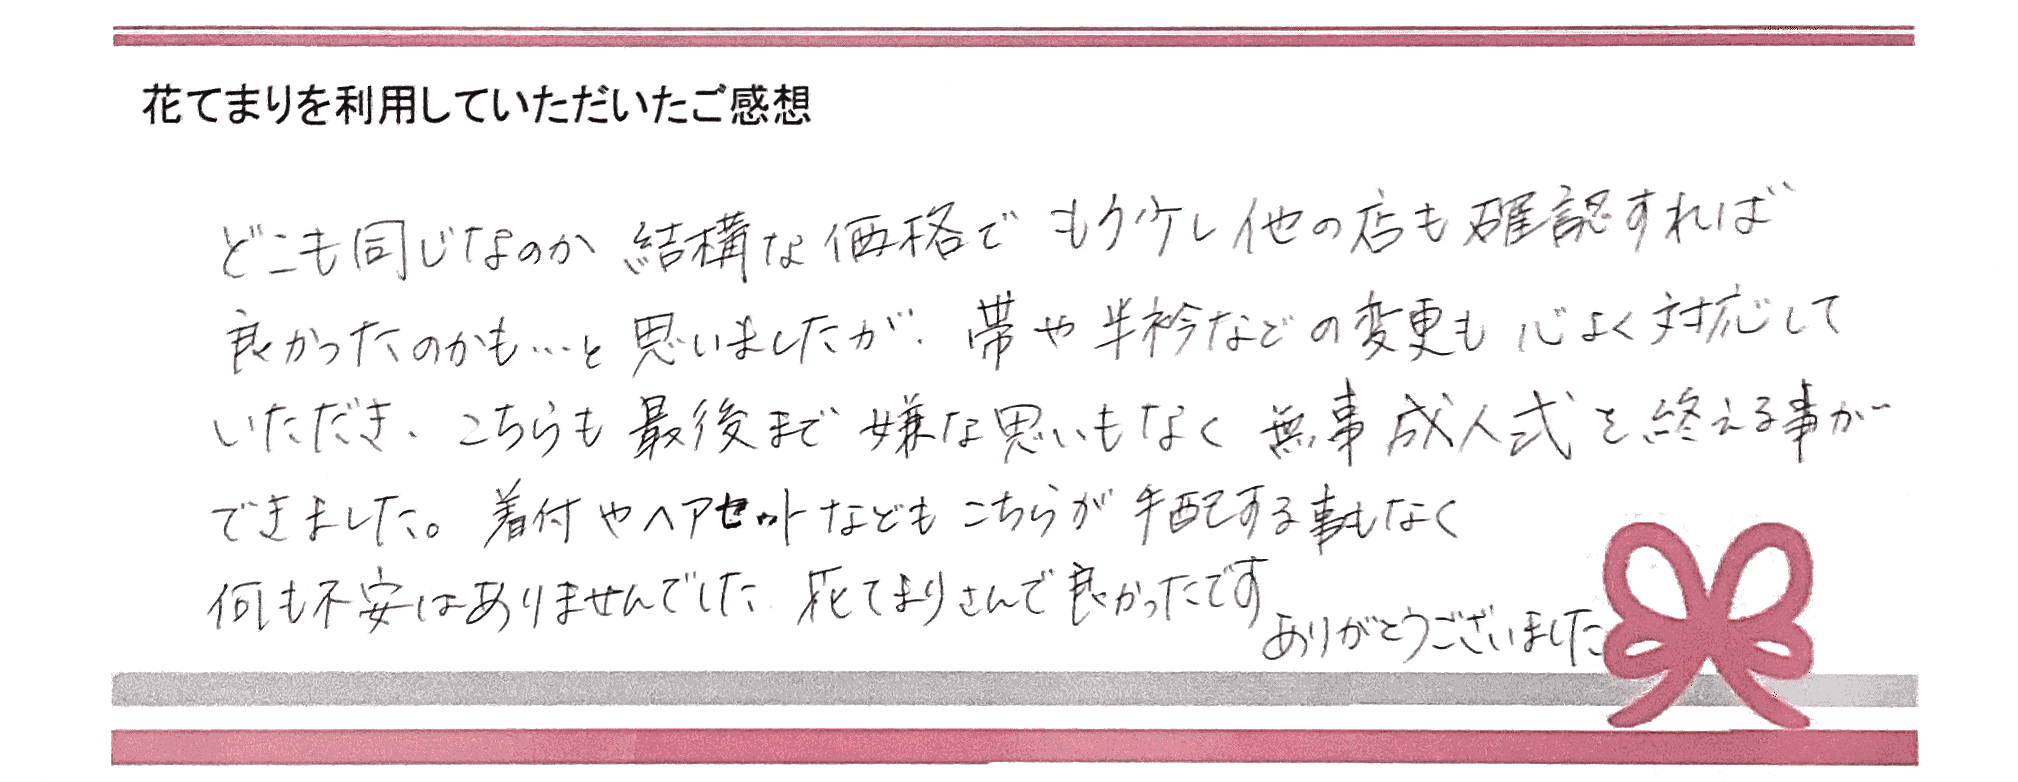 花てまりを利用していただいたご感想
どこも同じなのか 結構な価格で もう少し他の店も確認すれば
良かったのかも…と思いましたが、帯や半衿などの変更も心よく対応して
いただき、こちらも最後まで嫌な思いもなく無事成人式を終える事が
できました。着付やヘアセットなどもこちらが手配する事もなく
何も不安はありませんでした 花てまりさんで良かったです
ありがとうございました